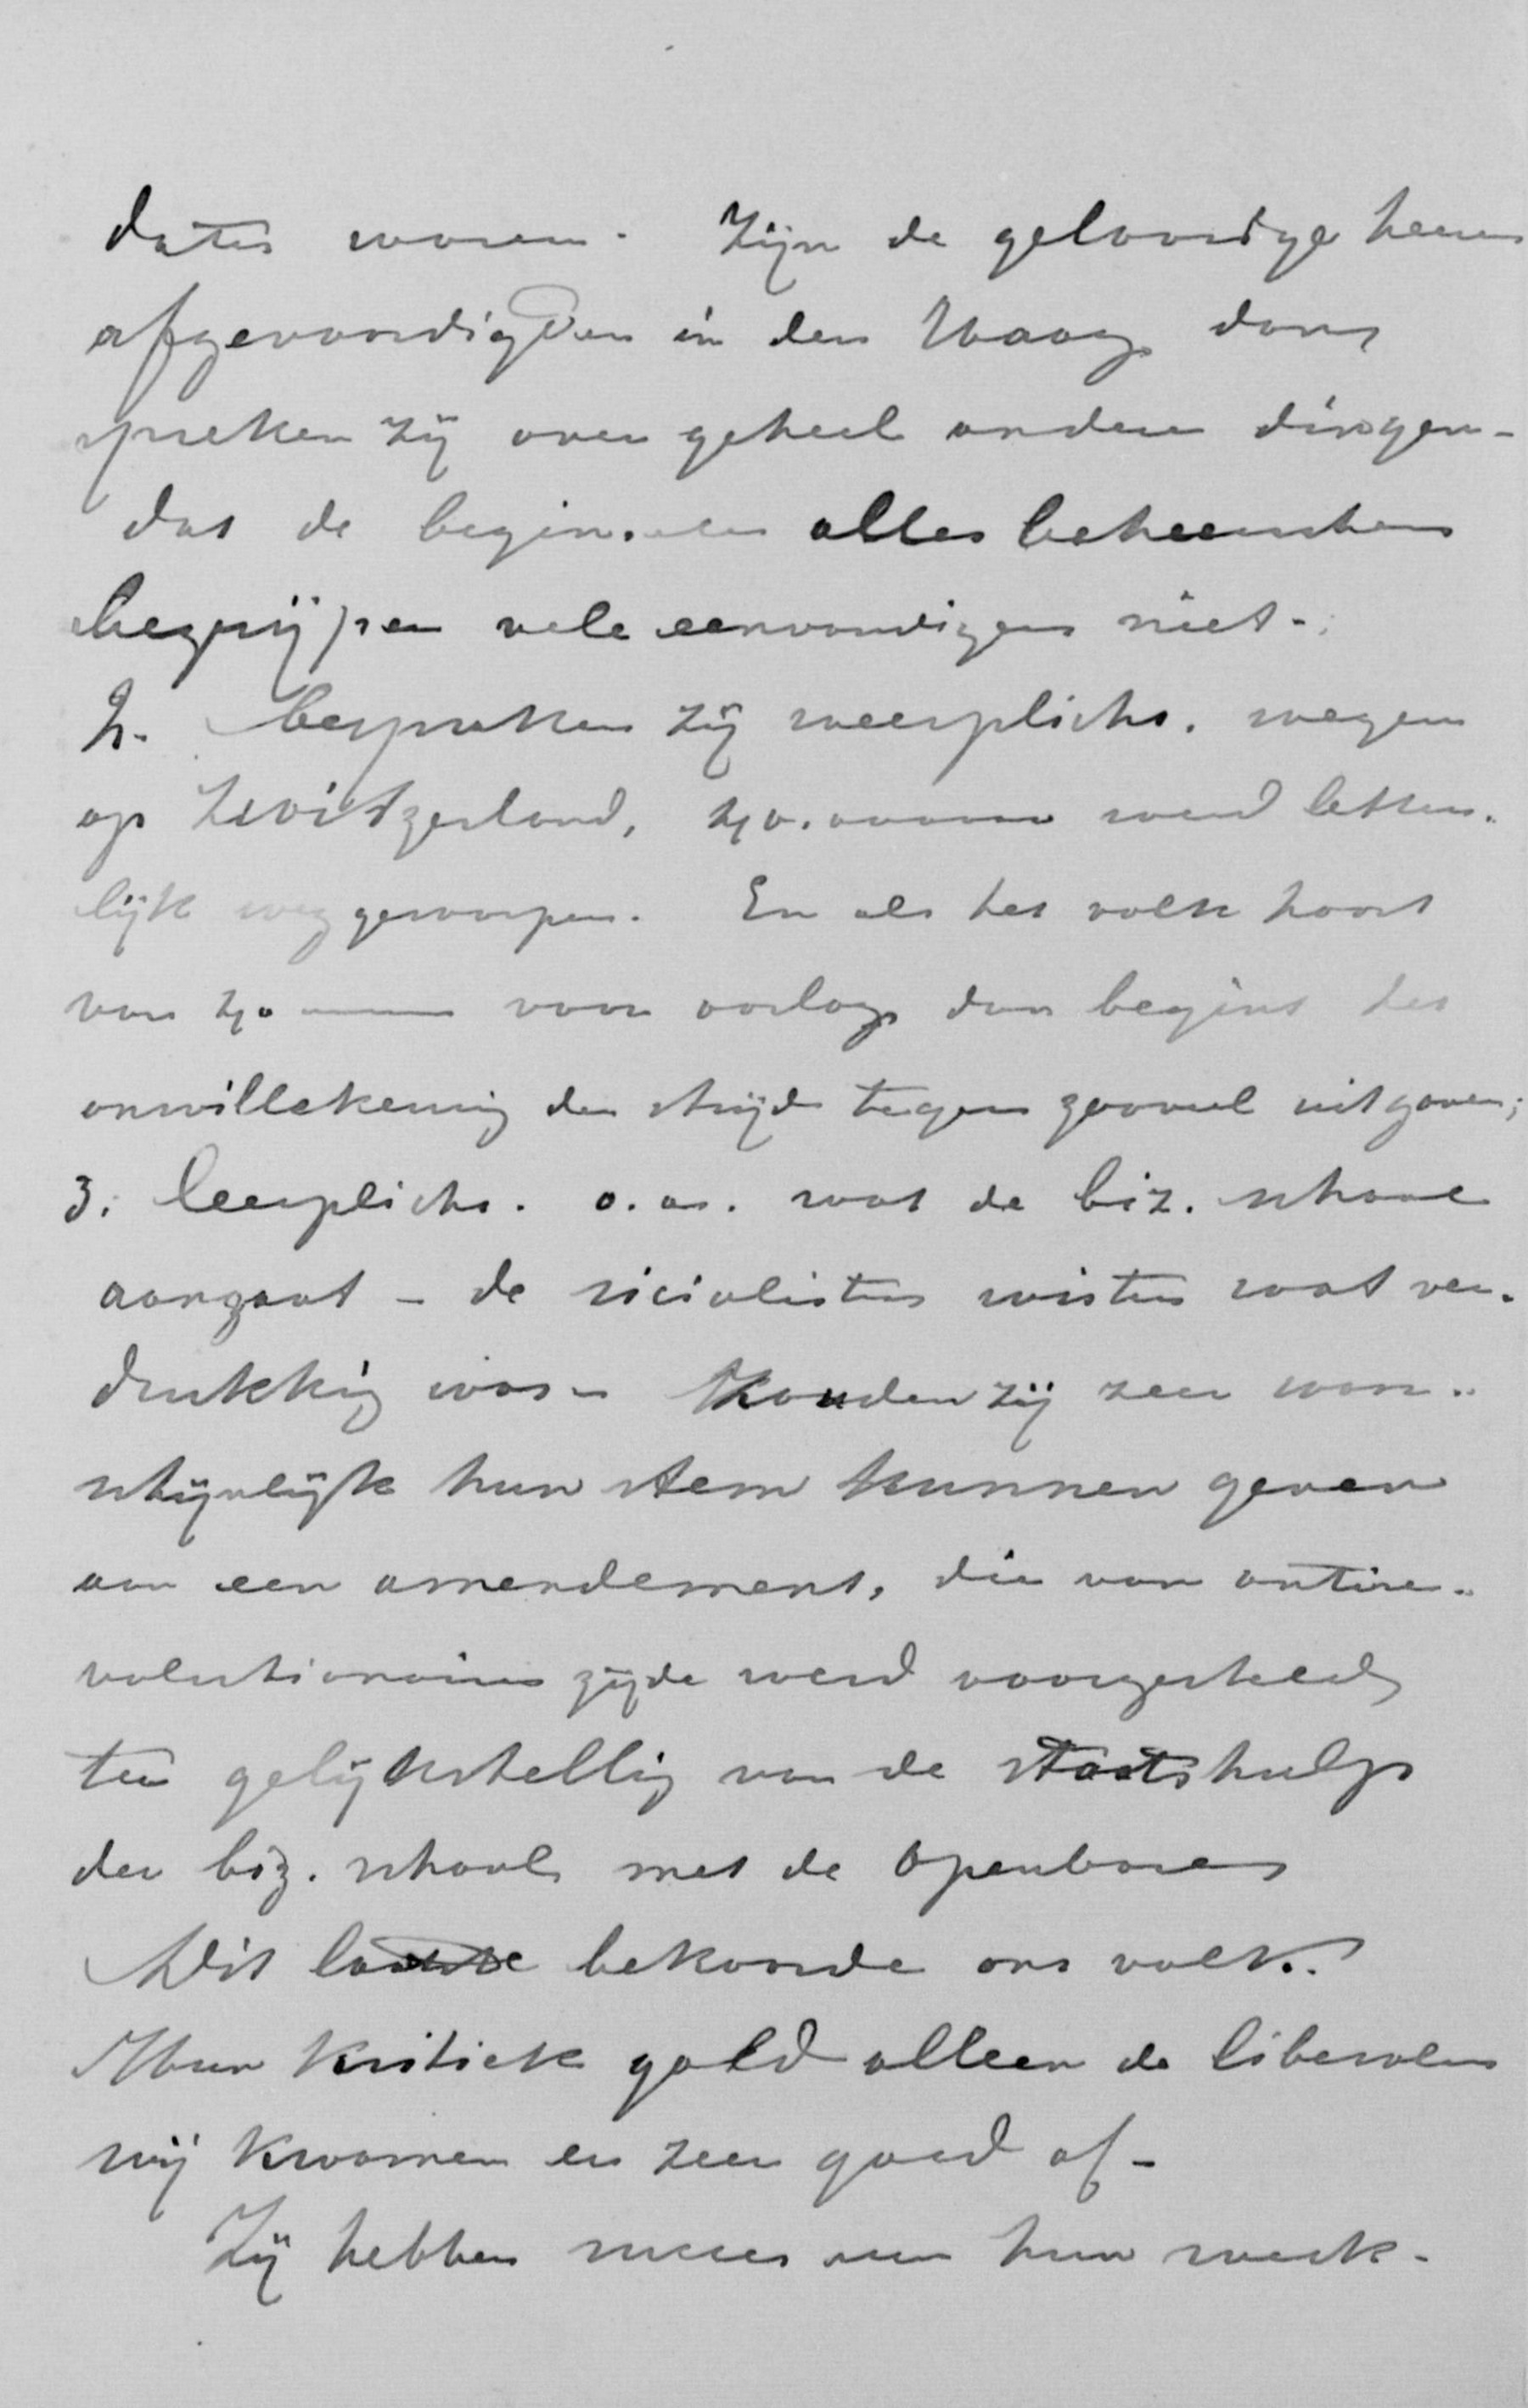 daten waren. Zijn de geloovige heeren
afgevaardigden in den Haag dan
spreken zij over geheel andere dingen -
dat de beginselen alles beheerschen
begrijpen vele eenvoudigen niet.
2. bespraken zij weerplicht. wezen
op Zwitzerland, 40.000000 werd letter-
lijk weggeworpen. En als het volk hoort
van 40 voor oorlog dan begint het
onwillekeurig den strijd tegen zooveel uitgaven;
3. leerplicht. o.a. wat de biz. school
aangaat - de socialisten wisten wat ver-
drukking was - konden zij zeer waar-
schijnlijk hun stem kunnen geven
aan een amendement, die van antire-
volutionaire zijde werd voorgesteld
ter gelijkstelling van de staatshulp
der biz. school met de openbare
Dit bekoorde ons volk.
Hun kritiek gold alleen de liberalen
wij kwamen er zeer goed af -
Zij hebben succes van hun werk.